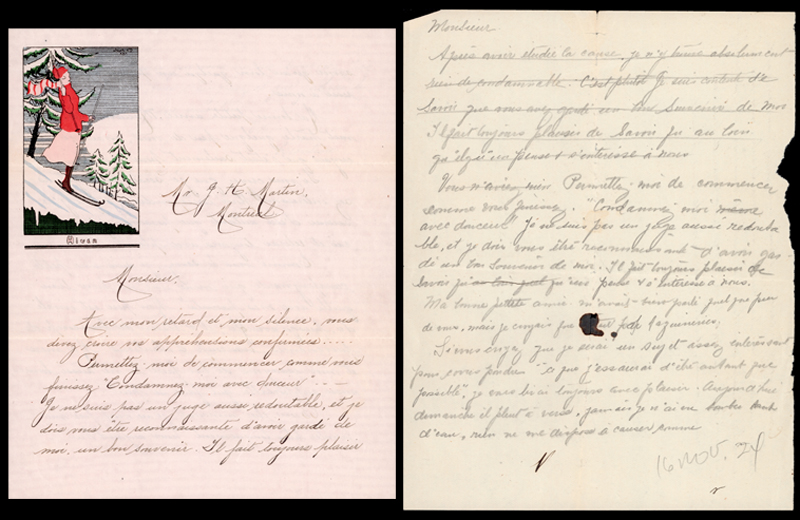 Hiver
Mr J. H. Martin.
Montréal
Monsieur.
Avec mon retard et mon silence, vous
devez croire vos appréhensions confirmées...
Permettez-moi de commencer comme vous
finissez "Condamnez-moi avec douceur" ...
Je ne suis pas un juge aussi redoutable, et je
dois vous être reconnaissante d'avoir gardé de
moi, un bon souvenir. Il fait toujours plaisir
Monsieur.
Après avoir étudié la cause je n'y trouve absolument
rien de condamnable. C'est plutôt Je suis de
savoir que vous avez gardé un bon souvenir de moi
Il fait toujours plaisir de savoir au loin
quelqu'un pense & s'intéresse à nous
Vous m'avez Permettez-moi de commencer
comme vous finissez. "Condamnez moi même
avec douceur" Je ne suis pas un juge aussi redouta-
ble, et je dois vous être reconnaissante d'avoir gar-
dé un bon souvenir de moi. Il fait toujours plaisir de
savoir pense & s'intéresse à nous.
Ma bonne petite amie m'avait bien parlé quelque peu
de vous, mais je croyais pas
Si vous croyez que je serai un sujet assez intéressant
pour
possible", je vous lirai toujours avec plaisir. Aujourd'hui
dimanche il pleut à verse, jamais je n'ai vu tomber tant
d'eau, rien ne me dispose à causer comme
16 Nov. 24